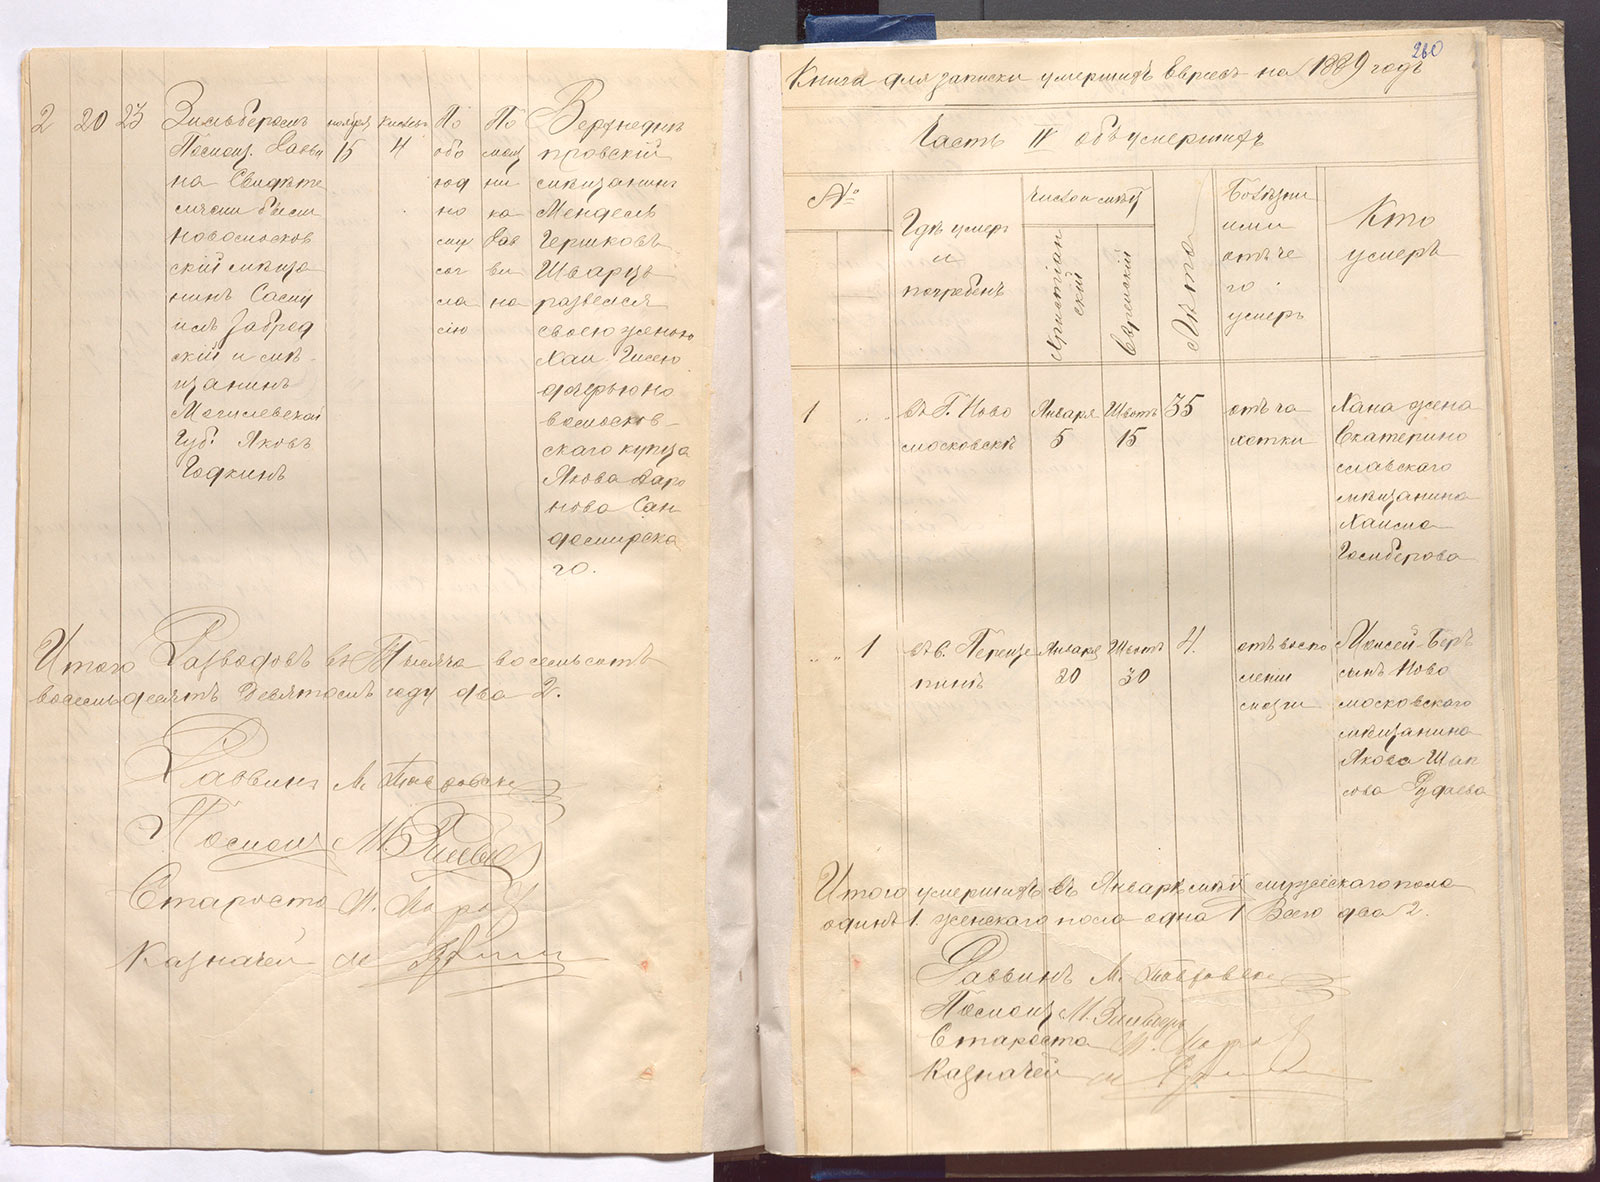 2 20 23
Зильберомъ
Помощ. Равви
на Свидѣте
лями были
новомосков
скій мѣща
нинъ Саму
илъ Заброд
скій и мѣ-
щанинъ
Могилевской
Губ. Яковъ
Годкинъ
ноября
15
Кислевъ
4
По
обо
юд
но
му
сог
ла
сію
По
мощ
ни
ка
Рав
ви
на
Верхнеднѣ
провскій
мѣщанинъ
Мендель
Гершковъ
Шварцъ
развелся
своею женою
Хаи Гисею
дочерью но
вомосков-
скаго купца
Якова Ааро
нова Сан
домирска
го.
Итого Разводовъ въ Тысяча восемьсотъ
восемьдесятъ Девятомъ году два 2.
Раввинъ М.
Помощн М.
Староста
Казначей М
260
Книга для записки умершихъ Евреевъ на 1889 годъ
Часть IV объ умершихъ
№
Гдѣ умеръ
и
погребенъ
Число и мѣсяц
Христіан
скій
Еврейскій
Лѣта
Болѣзни
или
отъ че
го
умеръ
Кто
умеръ
1
въ Г. Ново
московскѣ
Января
5
Шватъ
15
35
отъ ча
хотки
Хана жена
Екатерино
славскаго
мѣщанина
Хаима
Гомберова
1
въ с. Переще
пинѣ
Января
20
Шватъ
30
4.
отъ воспа
ленія
мозги
Моисей-Беръ
сынъ Ново
московскаго
мѣщанина
Якова Шап
сова Рудаева
Итого умершихъ въ Январѣ мѣся мужескаго пола
одинъ 1. женскаго пола одна 1 Всего два 2.
Раввинъ М.
Помощ М. Зильберъ
Староста
Казначей М